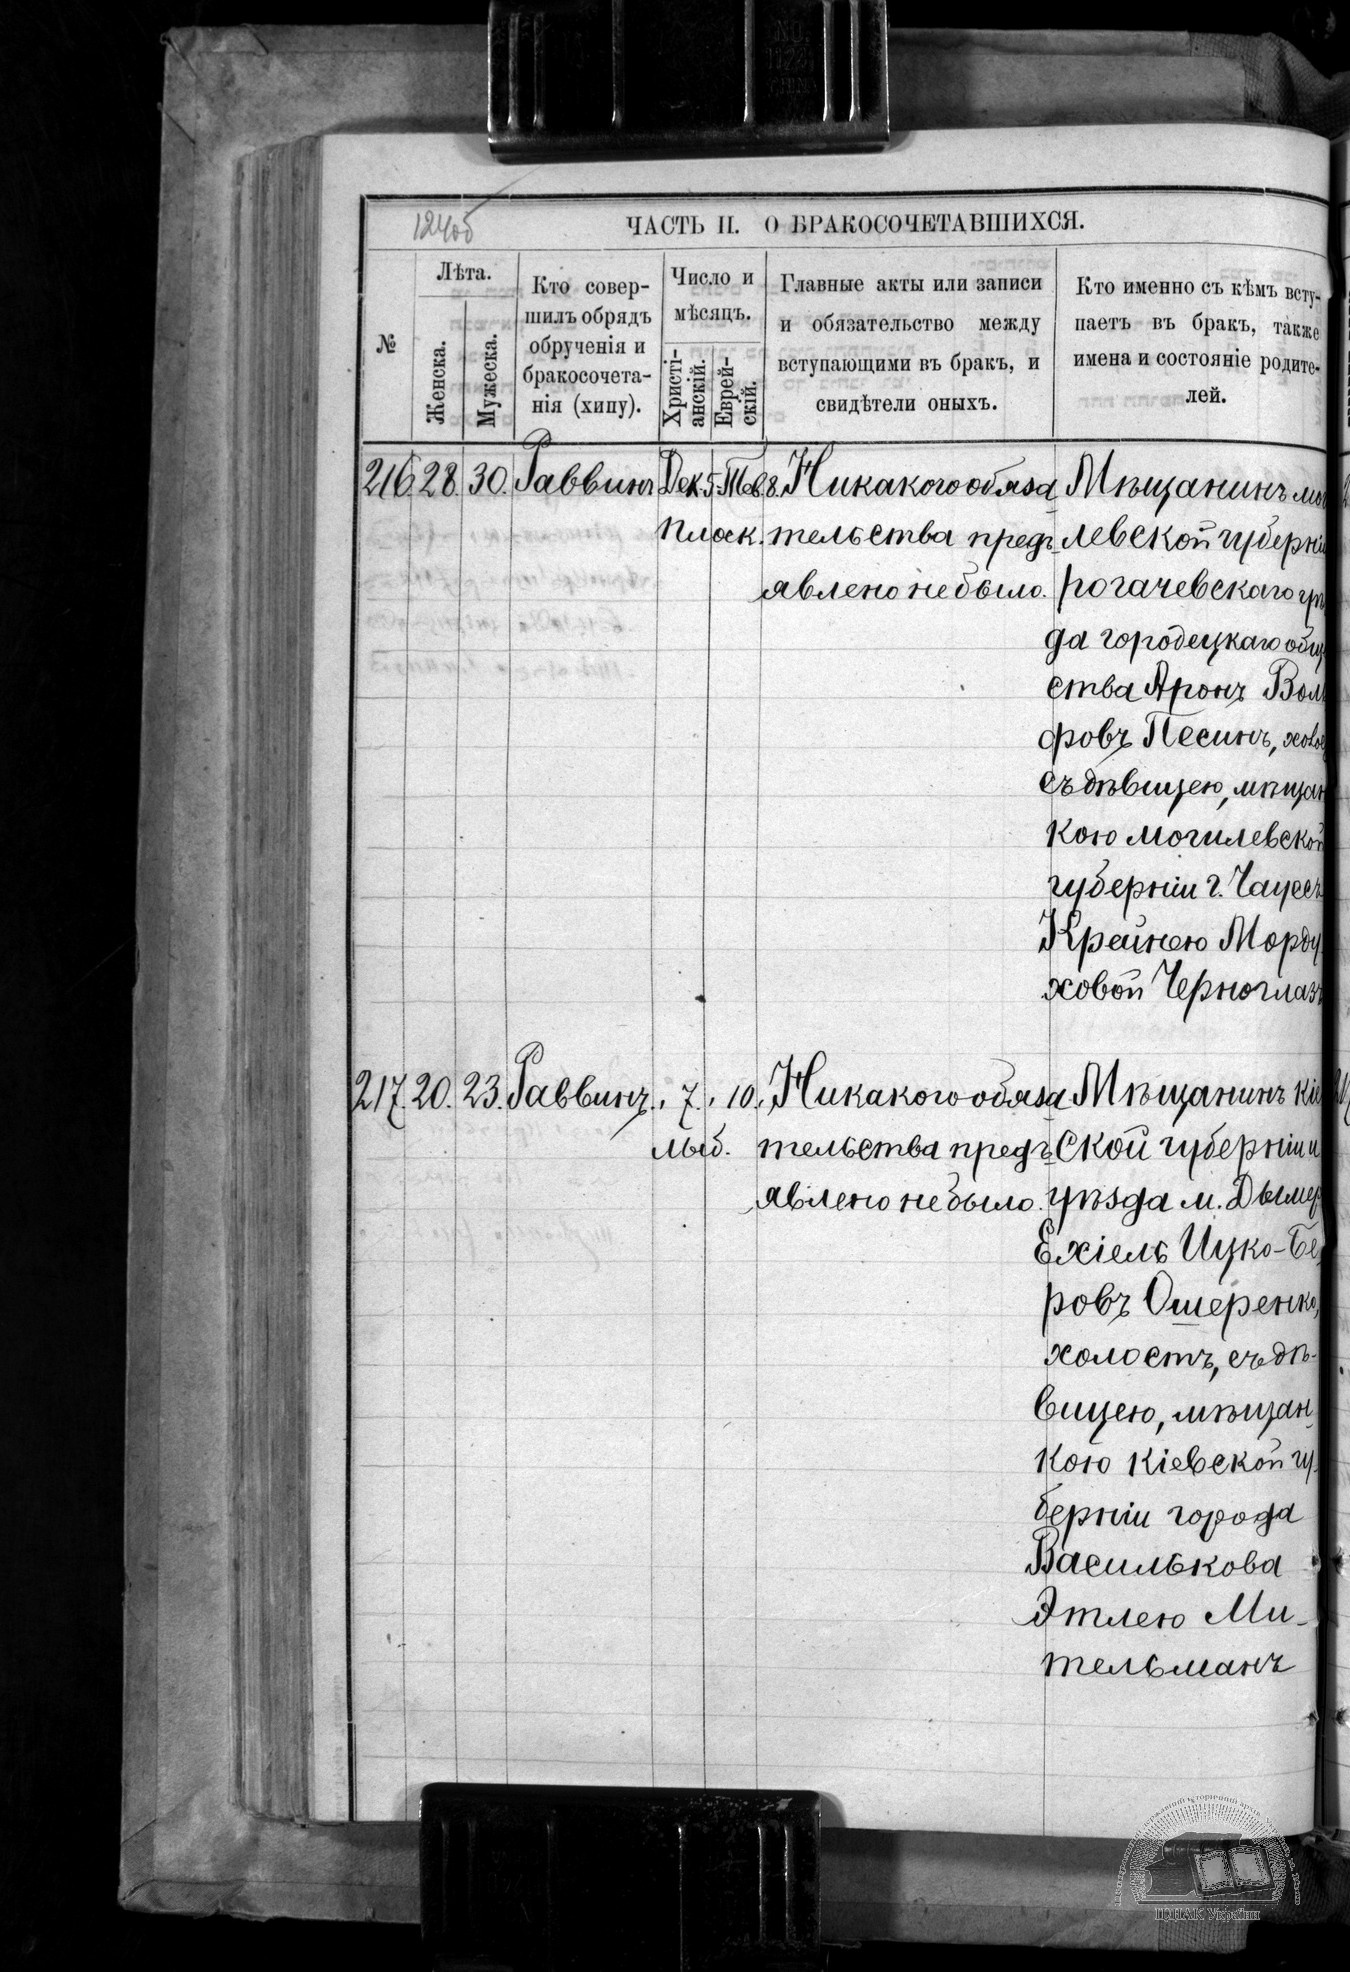 124об
ЧАСТЬ II. О БРАКОСОЧЕТАВШИХСЯ.
№
Лѣта.
Женска.
Мужеска.
Кто совер-
шилъ обрядъ
обрученія и
бракосочета-
нія (хипу).
Число и
мѣсяцъ.
Христі-
анскій.
Еврей-
скій.
Главные акты или записи
и обязательство между
вступающими въ бракъ, и
свидѣтели оныхъ.
Кто именно съ кѣмъ всту-
паетъ въ бракъ, также
имена и состояніе родите-
лей.
216. 28. 30. Раввинъ Дек. 5. Тев. 8. Никакого обяза Мѣщанинъ мог
Плоск. тельства предъ- левской губерніи
явлено не было. рогачевскаго уѣз
да городецкаго общ
ства Аронъ Воль
фовъ Песинъ,
съ дѣвицею, мѣщан
кою могилевской
губерніи г. Чаусъ
Крейнею Морду
ховой Черноглазъ
217. 20. 23. Раввинъ. „ 7. „ 10. Никакого обяза Мѣщанинъ кіев
лыб. тельства предъ- ской губерніи и
явлено не было. уѣзда м. Дымер
Ехіель Ицко-Бе
ровъ Ошеренко,
холостъ, съ дѣ-
вицею, мѣщан
кою кіевской гу-
берніи города
Василькова
Этлею Ми-
тельманъ
ЦДІАК України